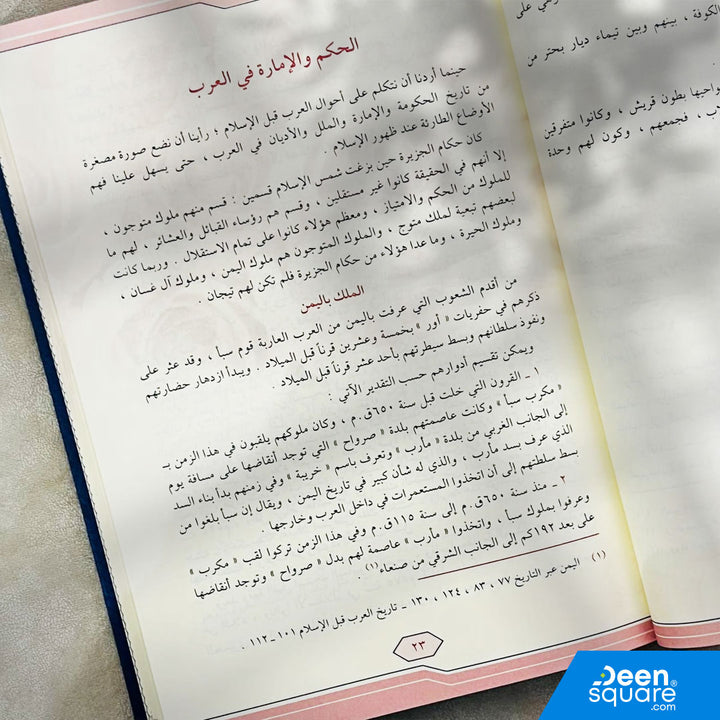 الكوفة ، بينهم وبين تيماء ديار بحتر من
بطون قريش ، وكانوا متفرقين
، فجمعهم ، وكون لهم وحدة
الحكم والإمارة في العرب
حينما أردنا أن نتكلم على أحوال العرب قبل الإسلام ؛ رأينا أن نضع صورة مصغرة
من تاريخ الحكومة والإمارة والملل والأديان في العرب ، حتى يسهل علينا فهم
الأوضاع الطارئة عند ظهور الإسلام .
كان حكام الجزيرة حين بزغت شمس الإسلام قسمين : قسم منهم ملوك متوجون ،
إلا أنهم في الحقيقة كانوا غير مستقلين ، وقسم هم رؤساء القبائل والعشائر ، لهم ما
للملوك من الحكم والامتياز ، ومعظم هؤلاء كانوا على تمام الاستقلال . وربما كانت
لبعضهم تبعية لملك متوج ، والملوك المتوجون هم ملوك اليمن ، وملوك آل غسان ،
وملوك الحيرة ، وما عدا هؤلاء من حكام الجزيرة فلم تكن لهم تيجان .
الملك باليمن
من أقدم الشعوب التي عرفت باليمن من العرب العاربة قوم سبأ ، وقد عثر على
ذكرهم في حفريات « أور » بخمسة وعشرين قرناً قبل الميلاد . ويبدأ ازدهار حضارتهم
ونفوذ سلطانهم وبسط سيطرتهم بأحد عشر قرناً قبل الميلاد .
ويمكن تقسيم أدوارهم حسب التقدير الآتي :
١ ـ القرون التي خلت قبل سنة ٦٥٠ق.م ، وكان ملوكهم يلقبون في هذا الزمن بـ
« مكرب سبأ » وكانت عاصمتهم بلدة « صرواح » التي توجد أنقاضها على مسافة يوم
إلى الجانب الغربي من بلدة « مأرب » وتعرف باسم « خريبة » وفي زمنهم بدأ بناء السد
الذي عرف بسد مأرب ، والذي له شأن كبير في تاريخ اليمن ، ويقال إن سبأ بلغوا من
بسط سلطتهم إلى أن اتخذوا المستعمرات في داخل العرب وخارجها .
٢ ـ منذ سنة ٦٥٠ق.م إلى سنة ١١٥ق.م وفي هذا الزمن تركوا لقب « مكرب »
وعرفوا بملوك سبأ ، واتخذوا « مأرب » عاصمة لهم بدل « صرواح » وتوجد أنقاضها
على بعد ١٩٢كم إلى الجانب الشرقي من صنعاء(١) .
(١) اليمن عبر التاريخ ٧٧ ، ٨٣ ، ١٢٤ ، ١٣٠ ـ تاريخ العرب قبل الإسلام ١٠١ـ١١٢ .
٢٣
Deen
square®
.com